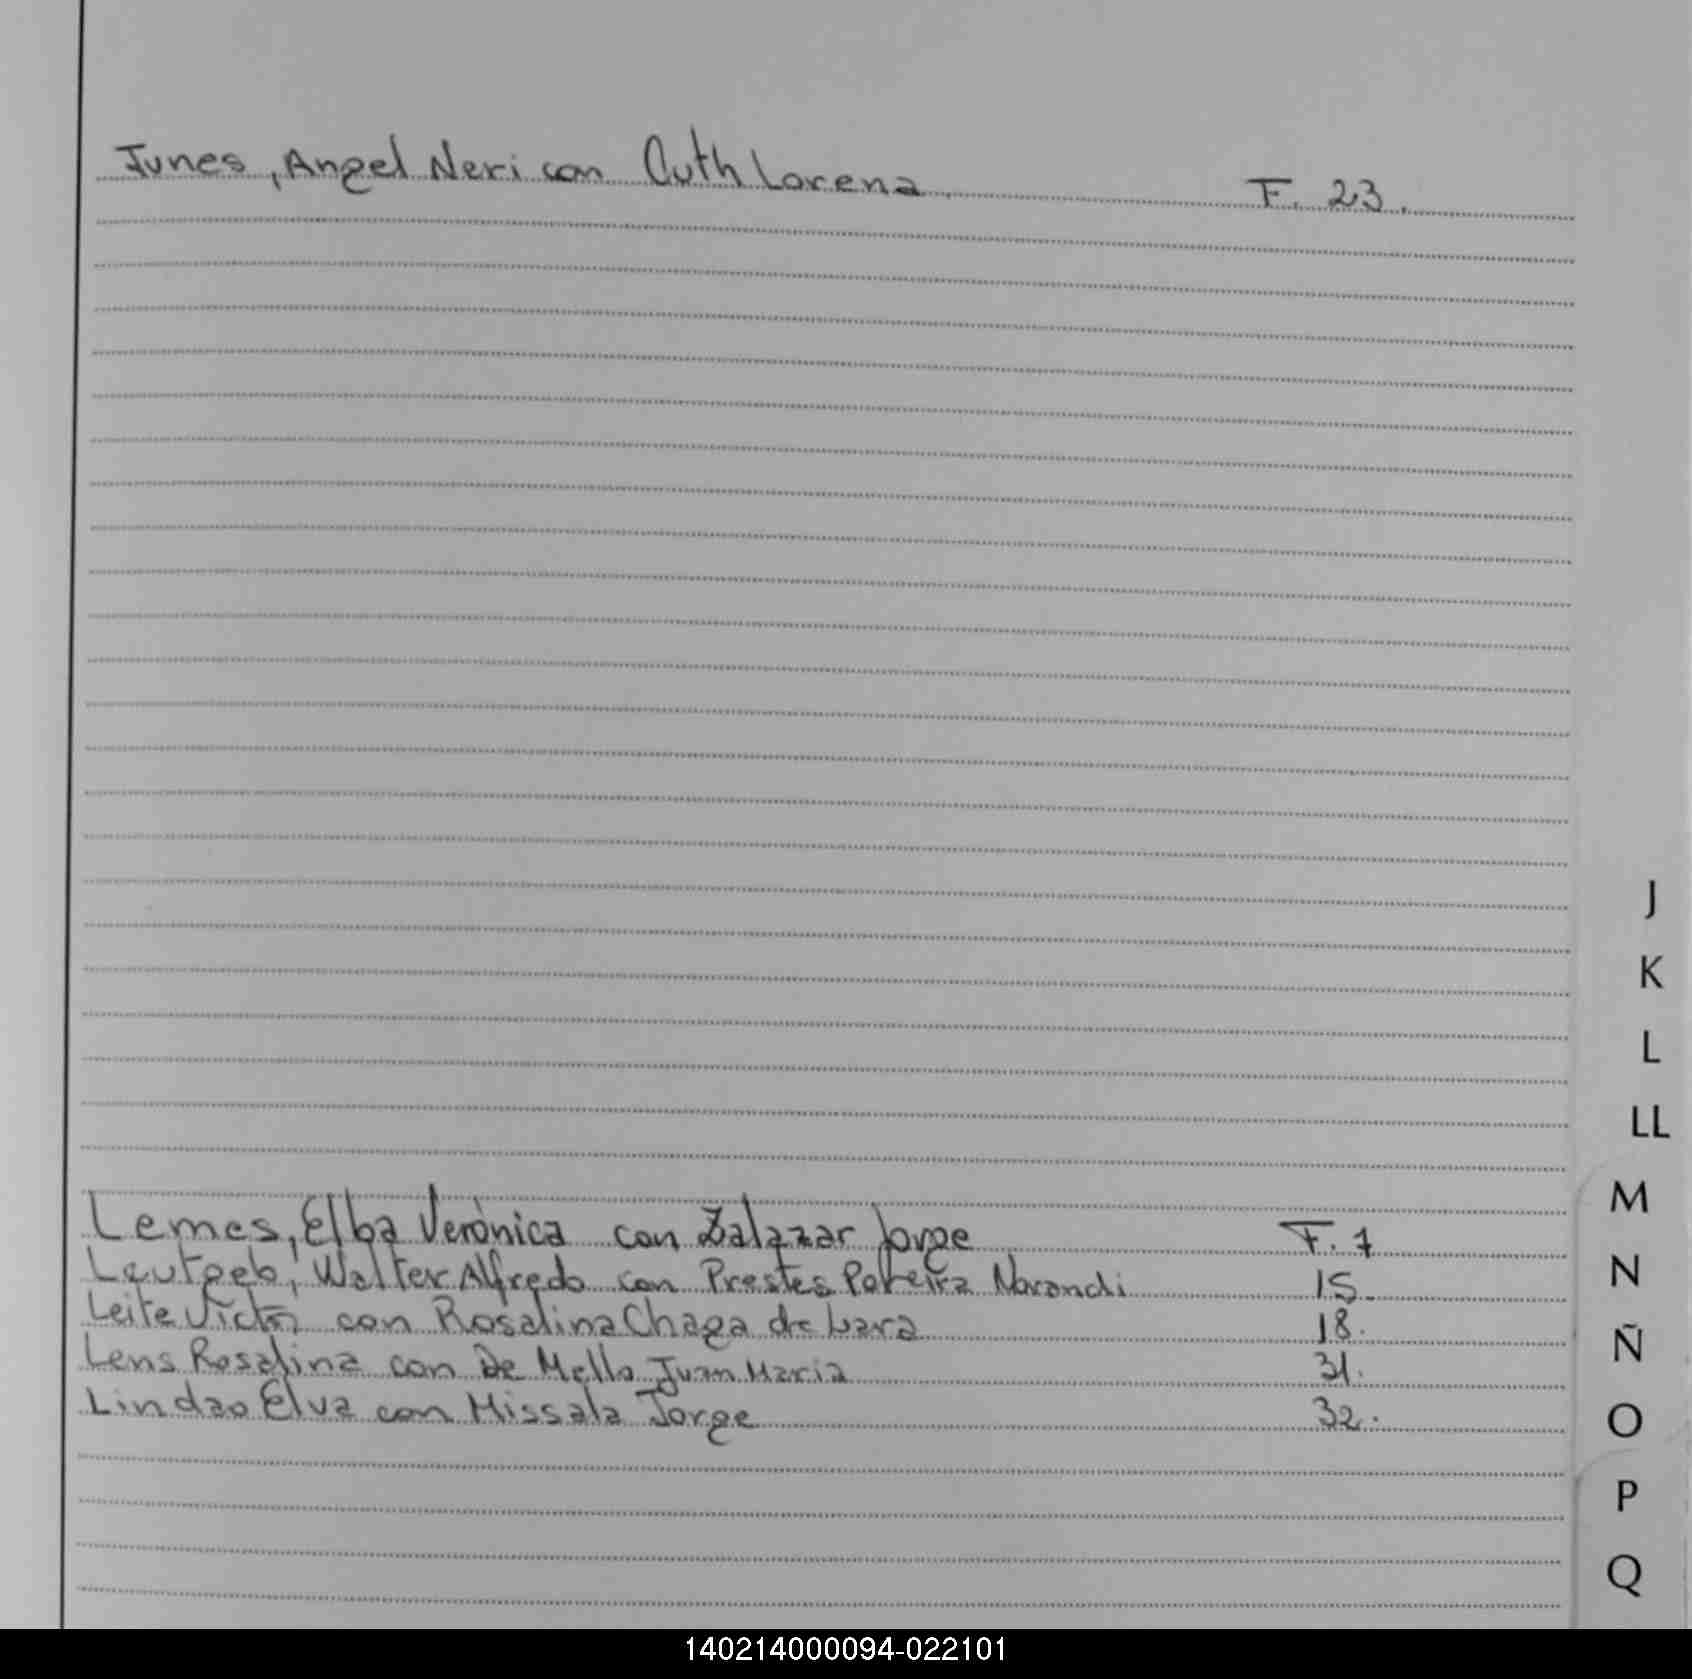 Junes, Angel Neri con Cuth Lorena F. 23.
J
K
L
LL
M
Lemes, Elba Verónica con Zalazar Jorge F. 7
N
Leutgeb, Walter Alfredo con Prestes Pereira Norandi 15.
Leite Victor con Rosalina Chaga de Lara 18.
Ñ
Lens Rosalina con De Mello Juan Maria 31.
Lindao Elva con Missala Jorge 32.
O
P
Q
140214000094-022101